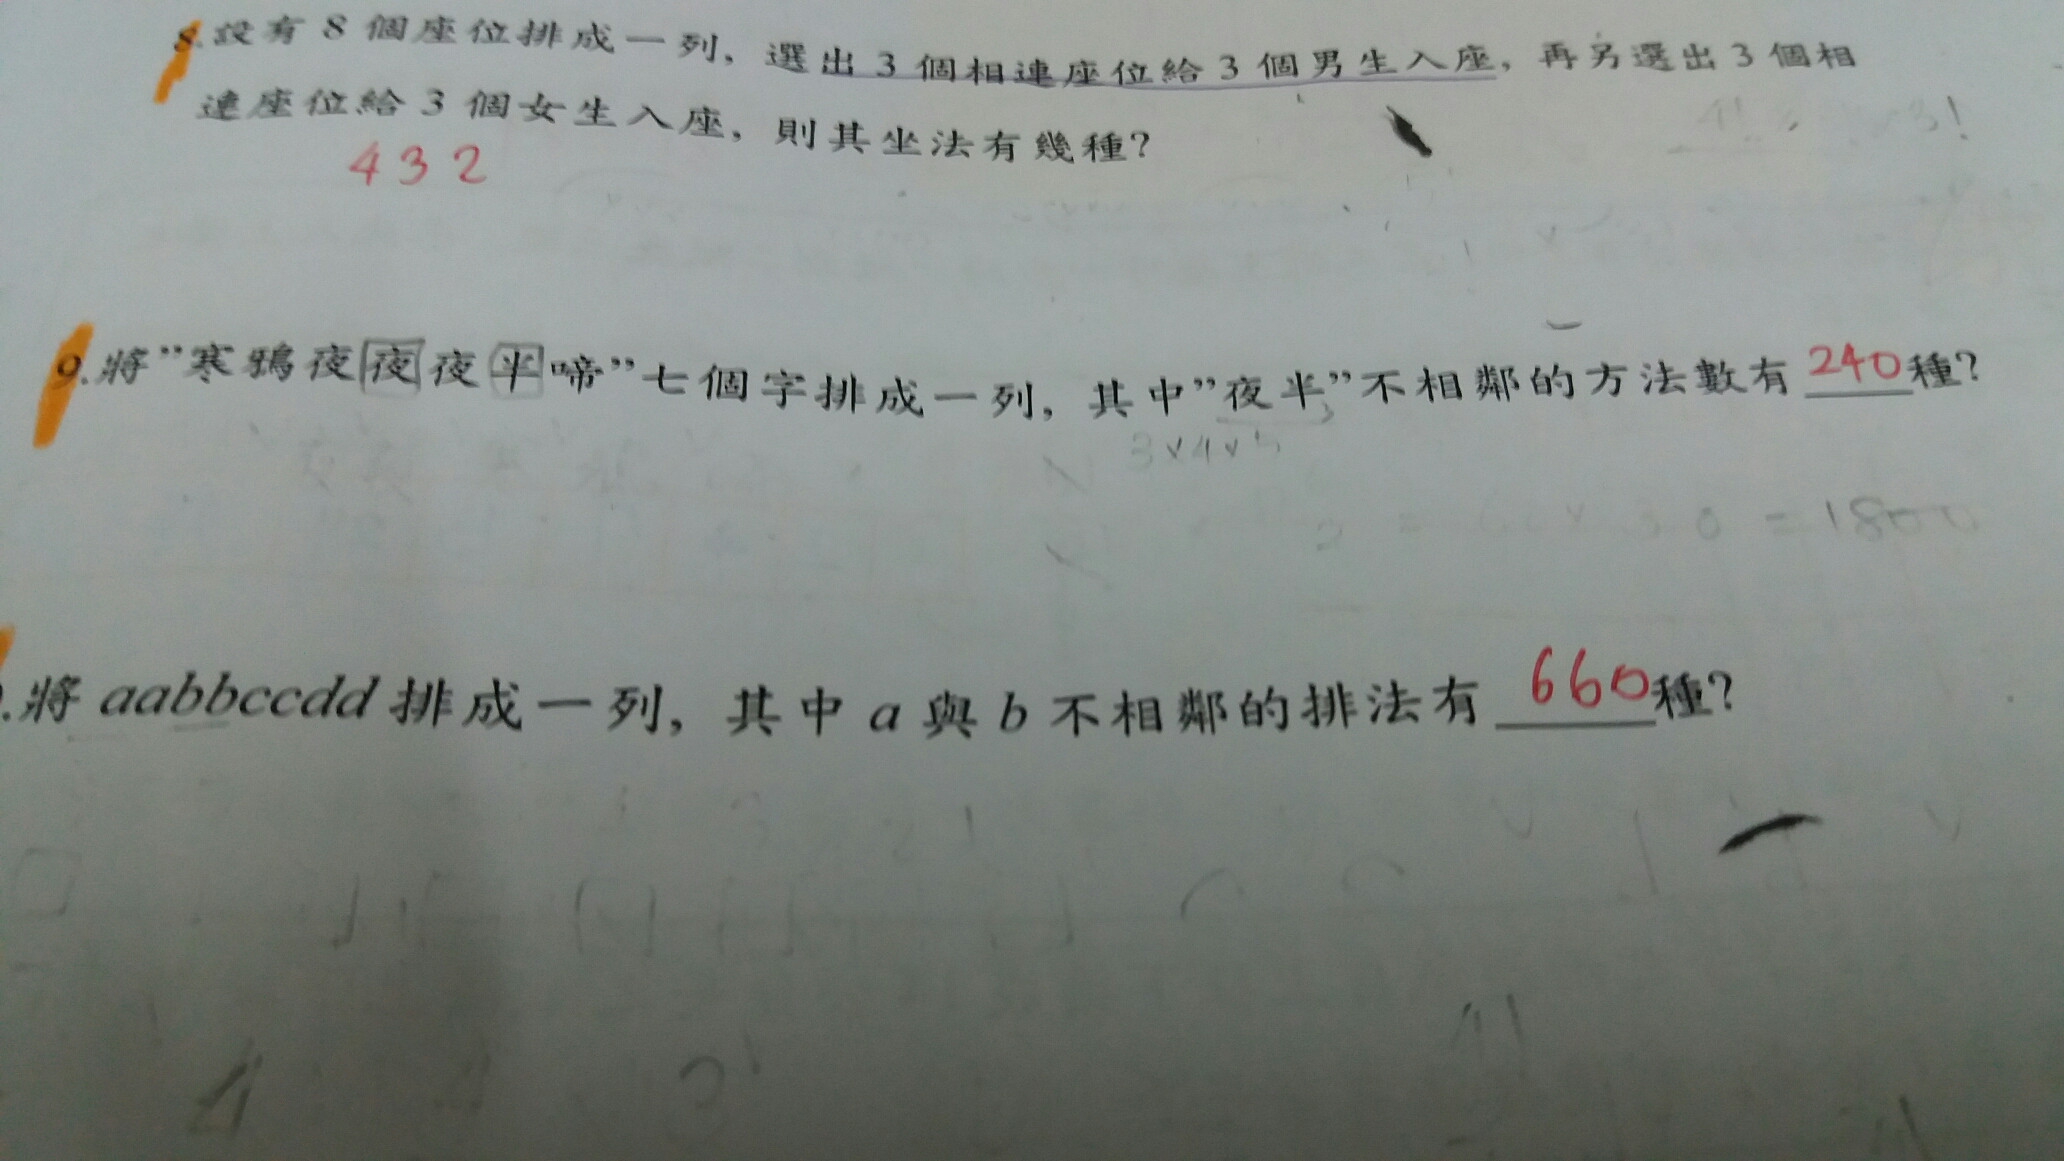 8.設有 8 個座位排成一列, 選出 3 個相連座位給 3 個男生入座, 再另選出 3 個相
連座位給 3 個女生入座, 則其坐法有幾種?
432
9.將”寒鴉夜夜夜半啼”七個字排成一列, 其中”夜半”不相鄰的方法數有 240 種?
3×4×5
= 1800
.將 aabbccdd 排成一列, 其中 a 與 b 不相鄰的排法有 660 種?